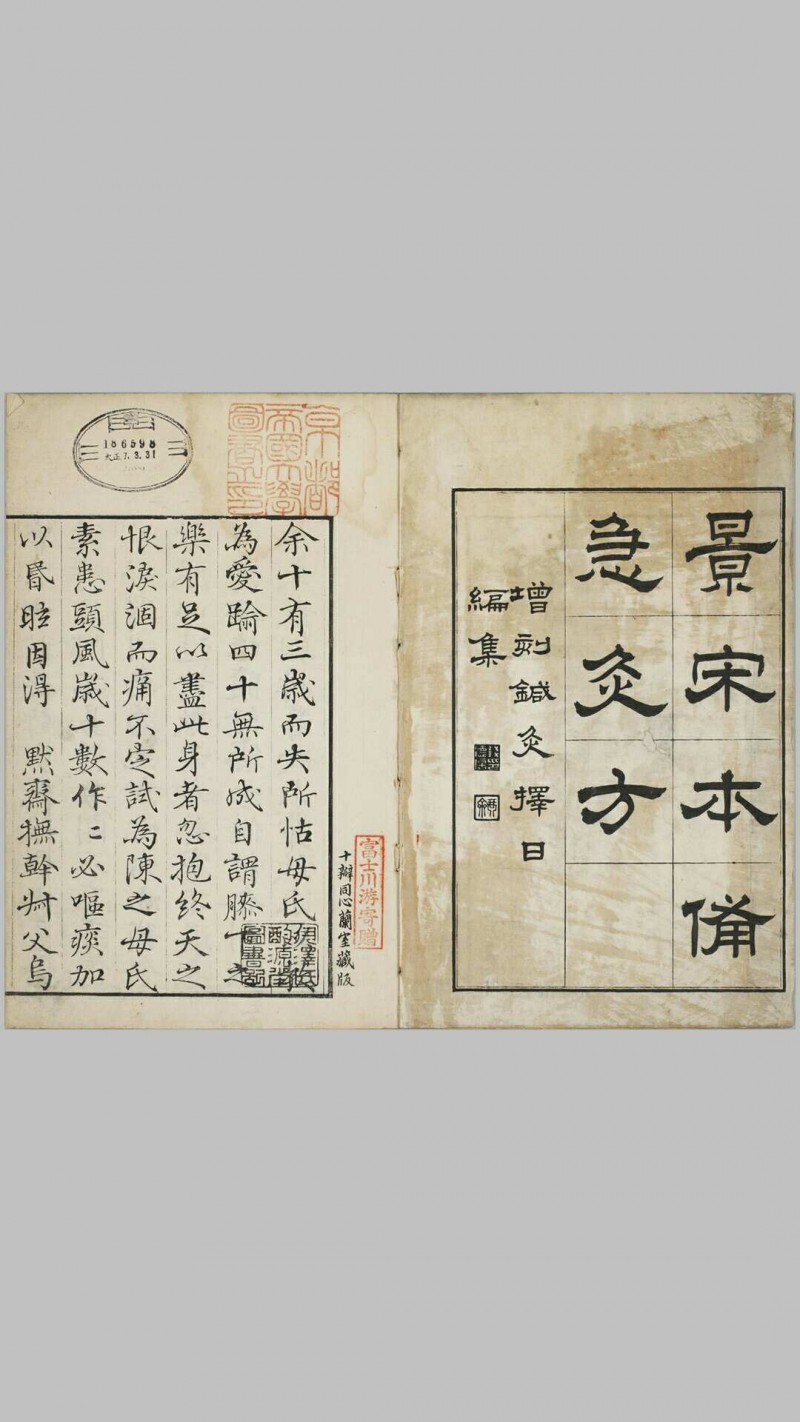 景宋本備
急灸方
增刻鍼灸擇日
編集
富士川游寄贈
十瓣同心蘭室藏版
京都
帝國大學
圖書之印
大正7.3.31
余十有三歲而失所怙母氏
為愛踰四十無所成自謂膝下之
樂有足以盡此身者忽抱終天之
恨淚涸而痛不定試為陳之母氏
素患頭風歲十數作〻必嘔痰加
以昬眩因得　默齋撫幹叔父烏
伊澤氏
酌源堂
圖書記